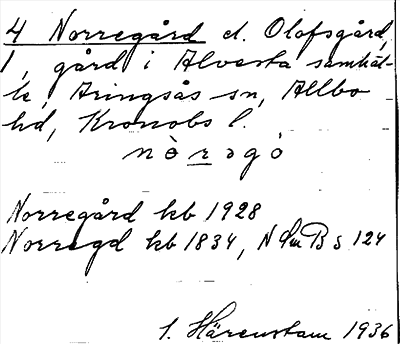 4 Norregård el. Olofsgård,
1, gård i Alvesta samhäl-
le, Aringsås sn, Allbo
hd, Kronobs l.
nòrəgò
Norregård kb 1928
Norregd kb 1834, N Sm B s 124
S. Härenstam 1936